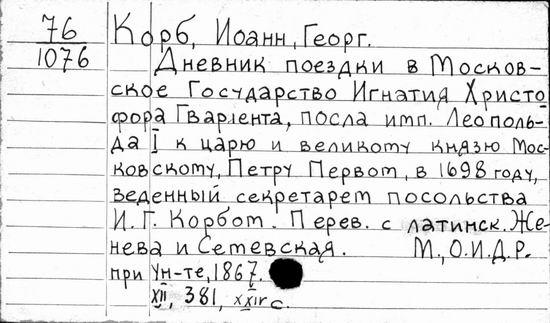 76
1076
Корб, Иоанн, Георг.
Дневник поездки в Москов-
ское Государство Игнатия Христо
фора Гвариента, посла имп. Леополь-
да I к царю и великому князю Мос-
ковскому, Петру Первом, в 1698 году,
веденный секретарем посольства
И.Г. Корбом. Перев. с латинск. Же-
нева и Семевская. М., О.И.Д.Р.
при Ун-те, 1867.
XII, 381, XXIV с.